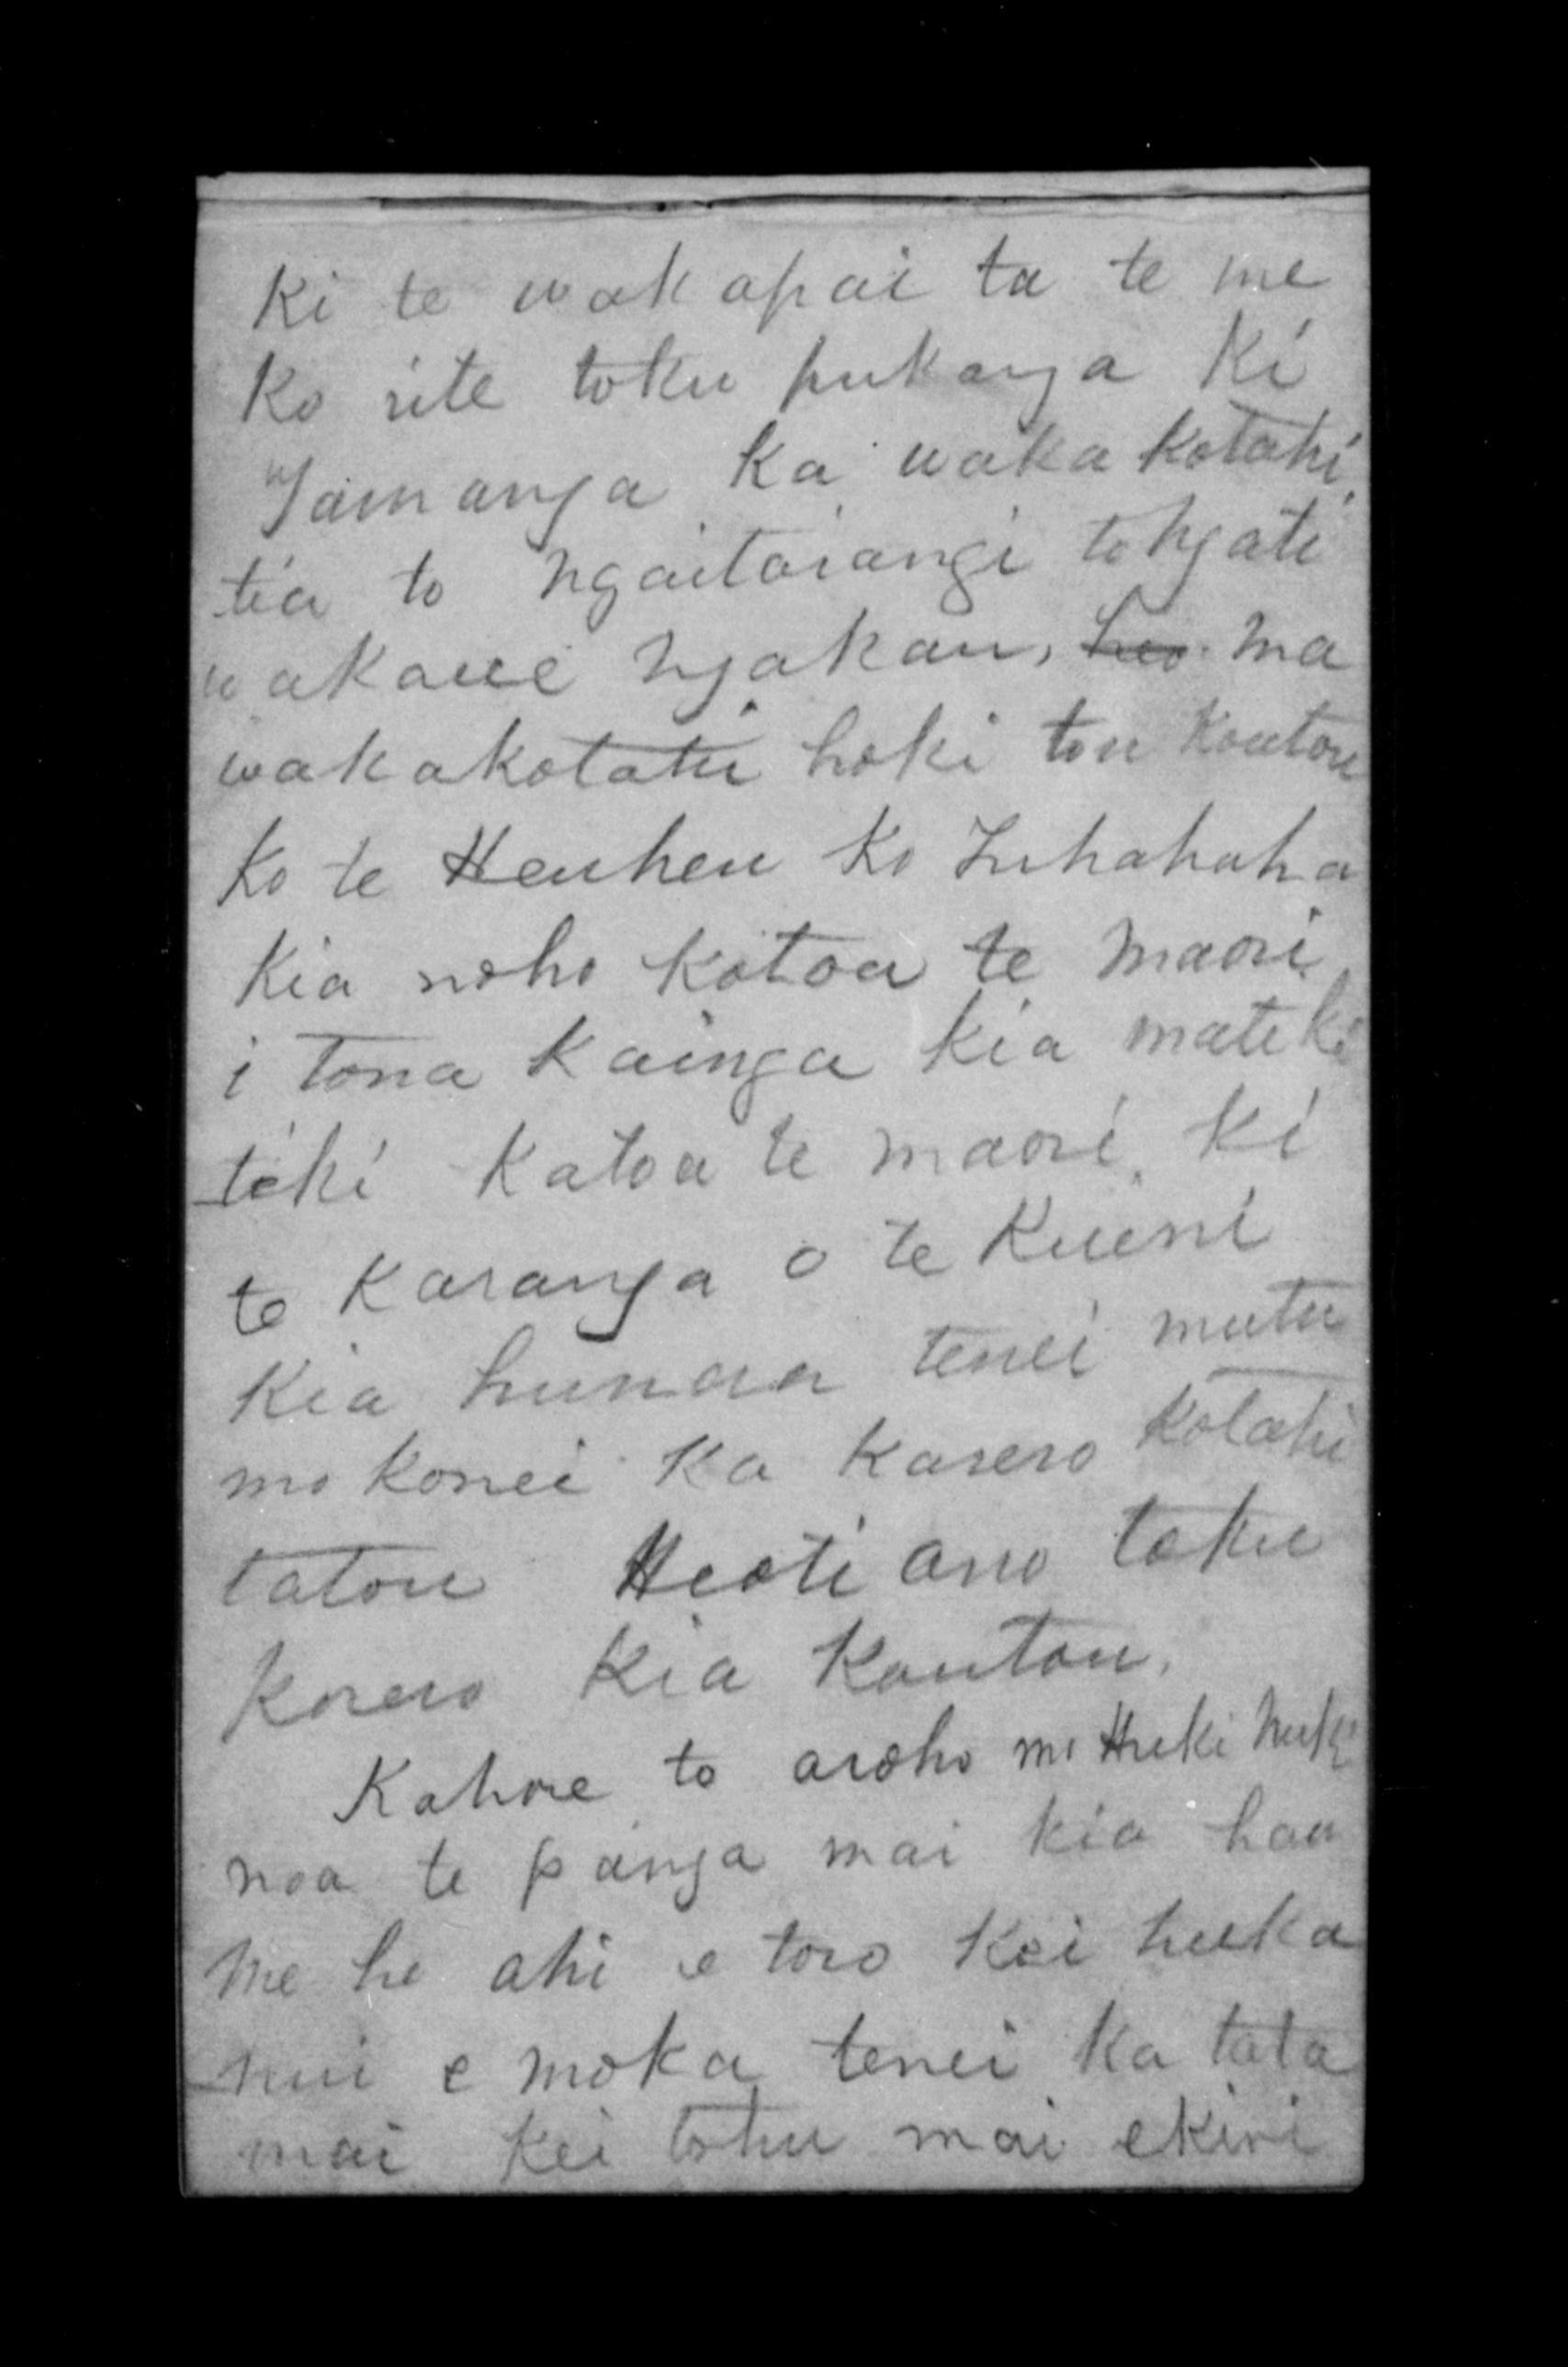 Ki te wakapai ta te me
Ko rite toku pukanga Ki
Tamanga Ka waka kotahi
tia to Ngaitaiangi to Ngati
wakaue Ngakau, heo. Ma
wakakotatu hoki tou Koutou
Ko te Heuheu Ko Tuhahaha
Kia noho Kotoa te Maori
i tona Kainga Kia mateki
teki Katoa te maori Ki
te Karanga o te Kueni
Kia hunaa tenei mutu
mo konei Ka Korero Kotahi
tatou Heoti ano taku
Korero Kia Koutou.
Kahore to aroho mo Huki huki
noa te panga mai kia hau
Me he ahi e toro Kei huka
hui e moka tenei Ka tata
mai Kei tohu mai ekiri